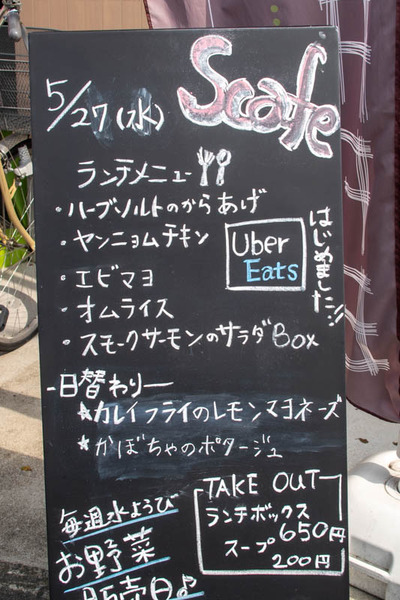 Scafe
5/27(水)
ランチメニュー
・ハーブソルトのからあげ
・ヤンニョムチキン
・エビマヨ
・オムライス
・スモークサーモンのサラダBOX
Uber
Eats
はじめました!!
-日替わり-
★カレイフライのレモンマヨネーズ
★かぼちゃのポタージュ
毎週水ようび
お野菜
販売日♪
TAKE OUT
ランチボックス
650円
スープ
200円